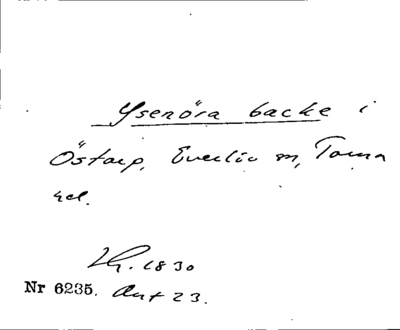 Ysenöra backe i
Östarp, Everlöv sn, Torna
hd.
Lh. 1830
Nr 6235. Akt 23.